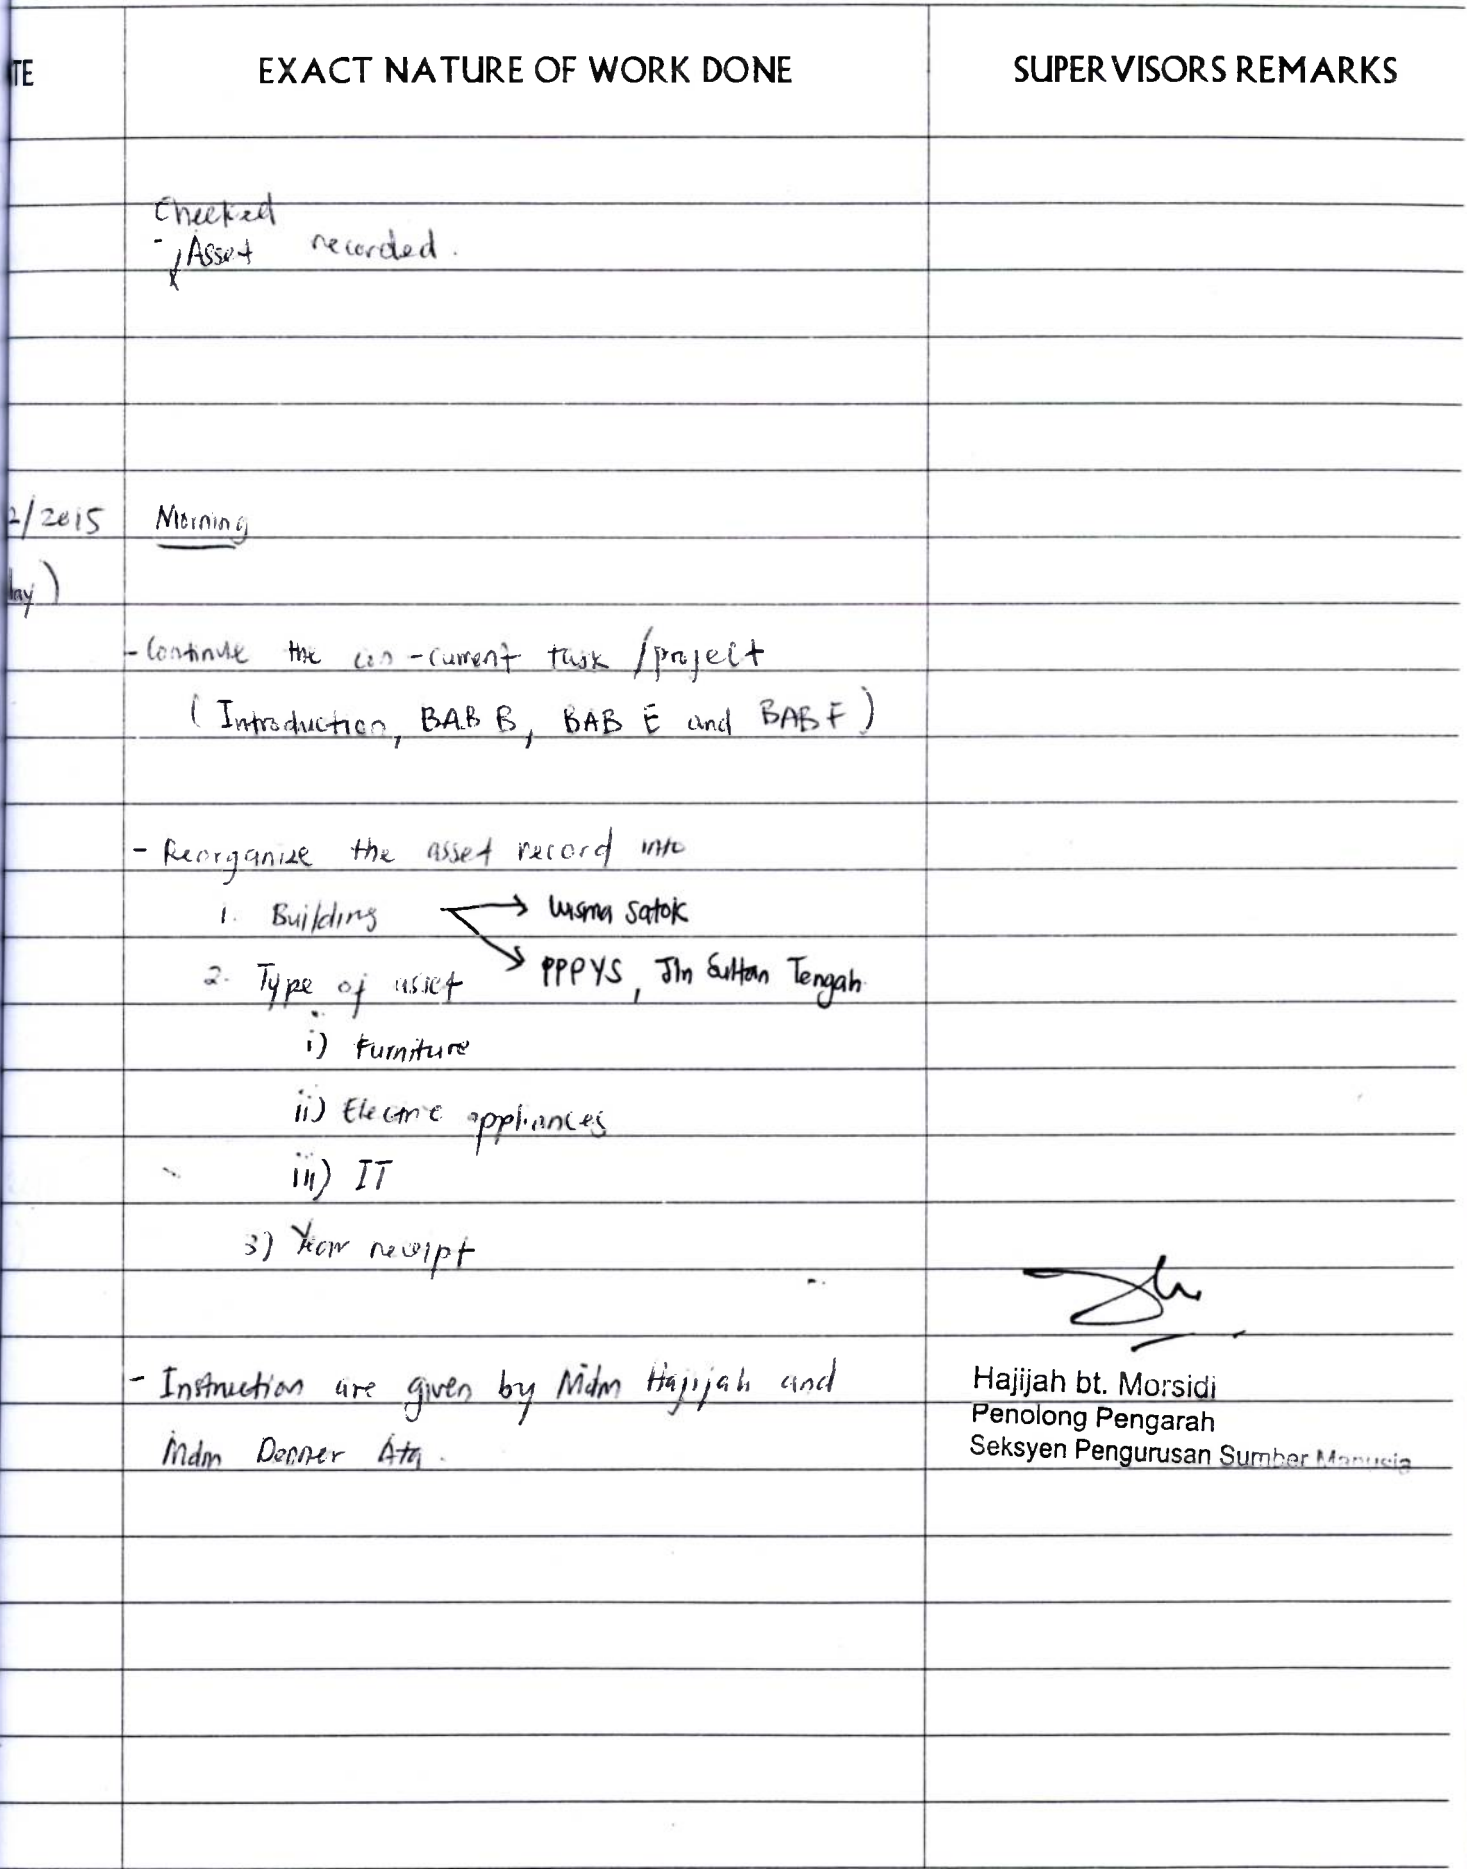 TE EXACT NATURE OF WORK DONE SUPERVISORS REMARKS
Checked
- Asset recorded.
2/2015 Morning
day)
- Continue the con-current task / project
( Introduction, BAB B, BAB E and BAB F )
- Reorganize the asset record into
1. Building → Wisma Satok
2. Type of asset → PPPYS, Jln Sultan Tengah
i) Furniture
ii) Electric appliances
iii) IT
3) Year receipt
- Instruction are given by Mdm Hajijah and
Mdm Ata.
Hajijah bt. Morsidi
Penolong Pengarah
Seksyen Pengurusan Sumber Manusia